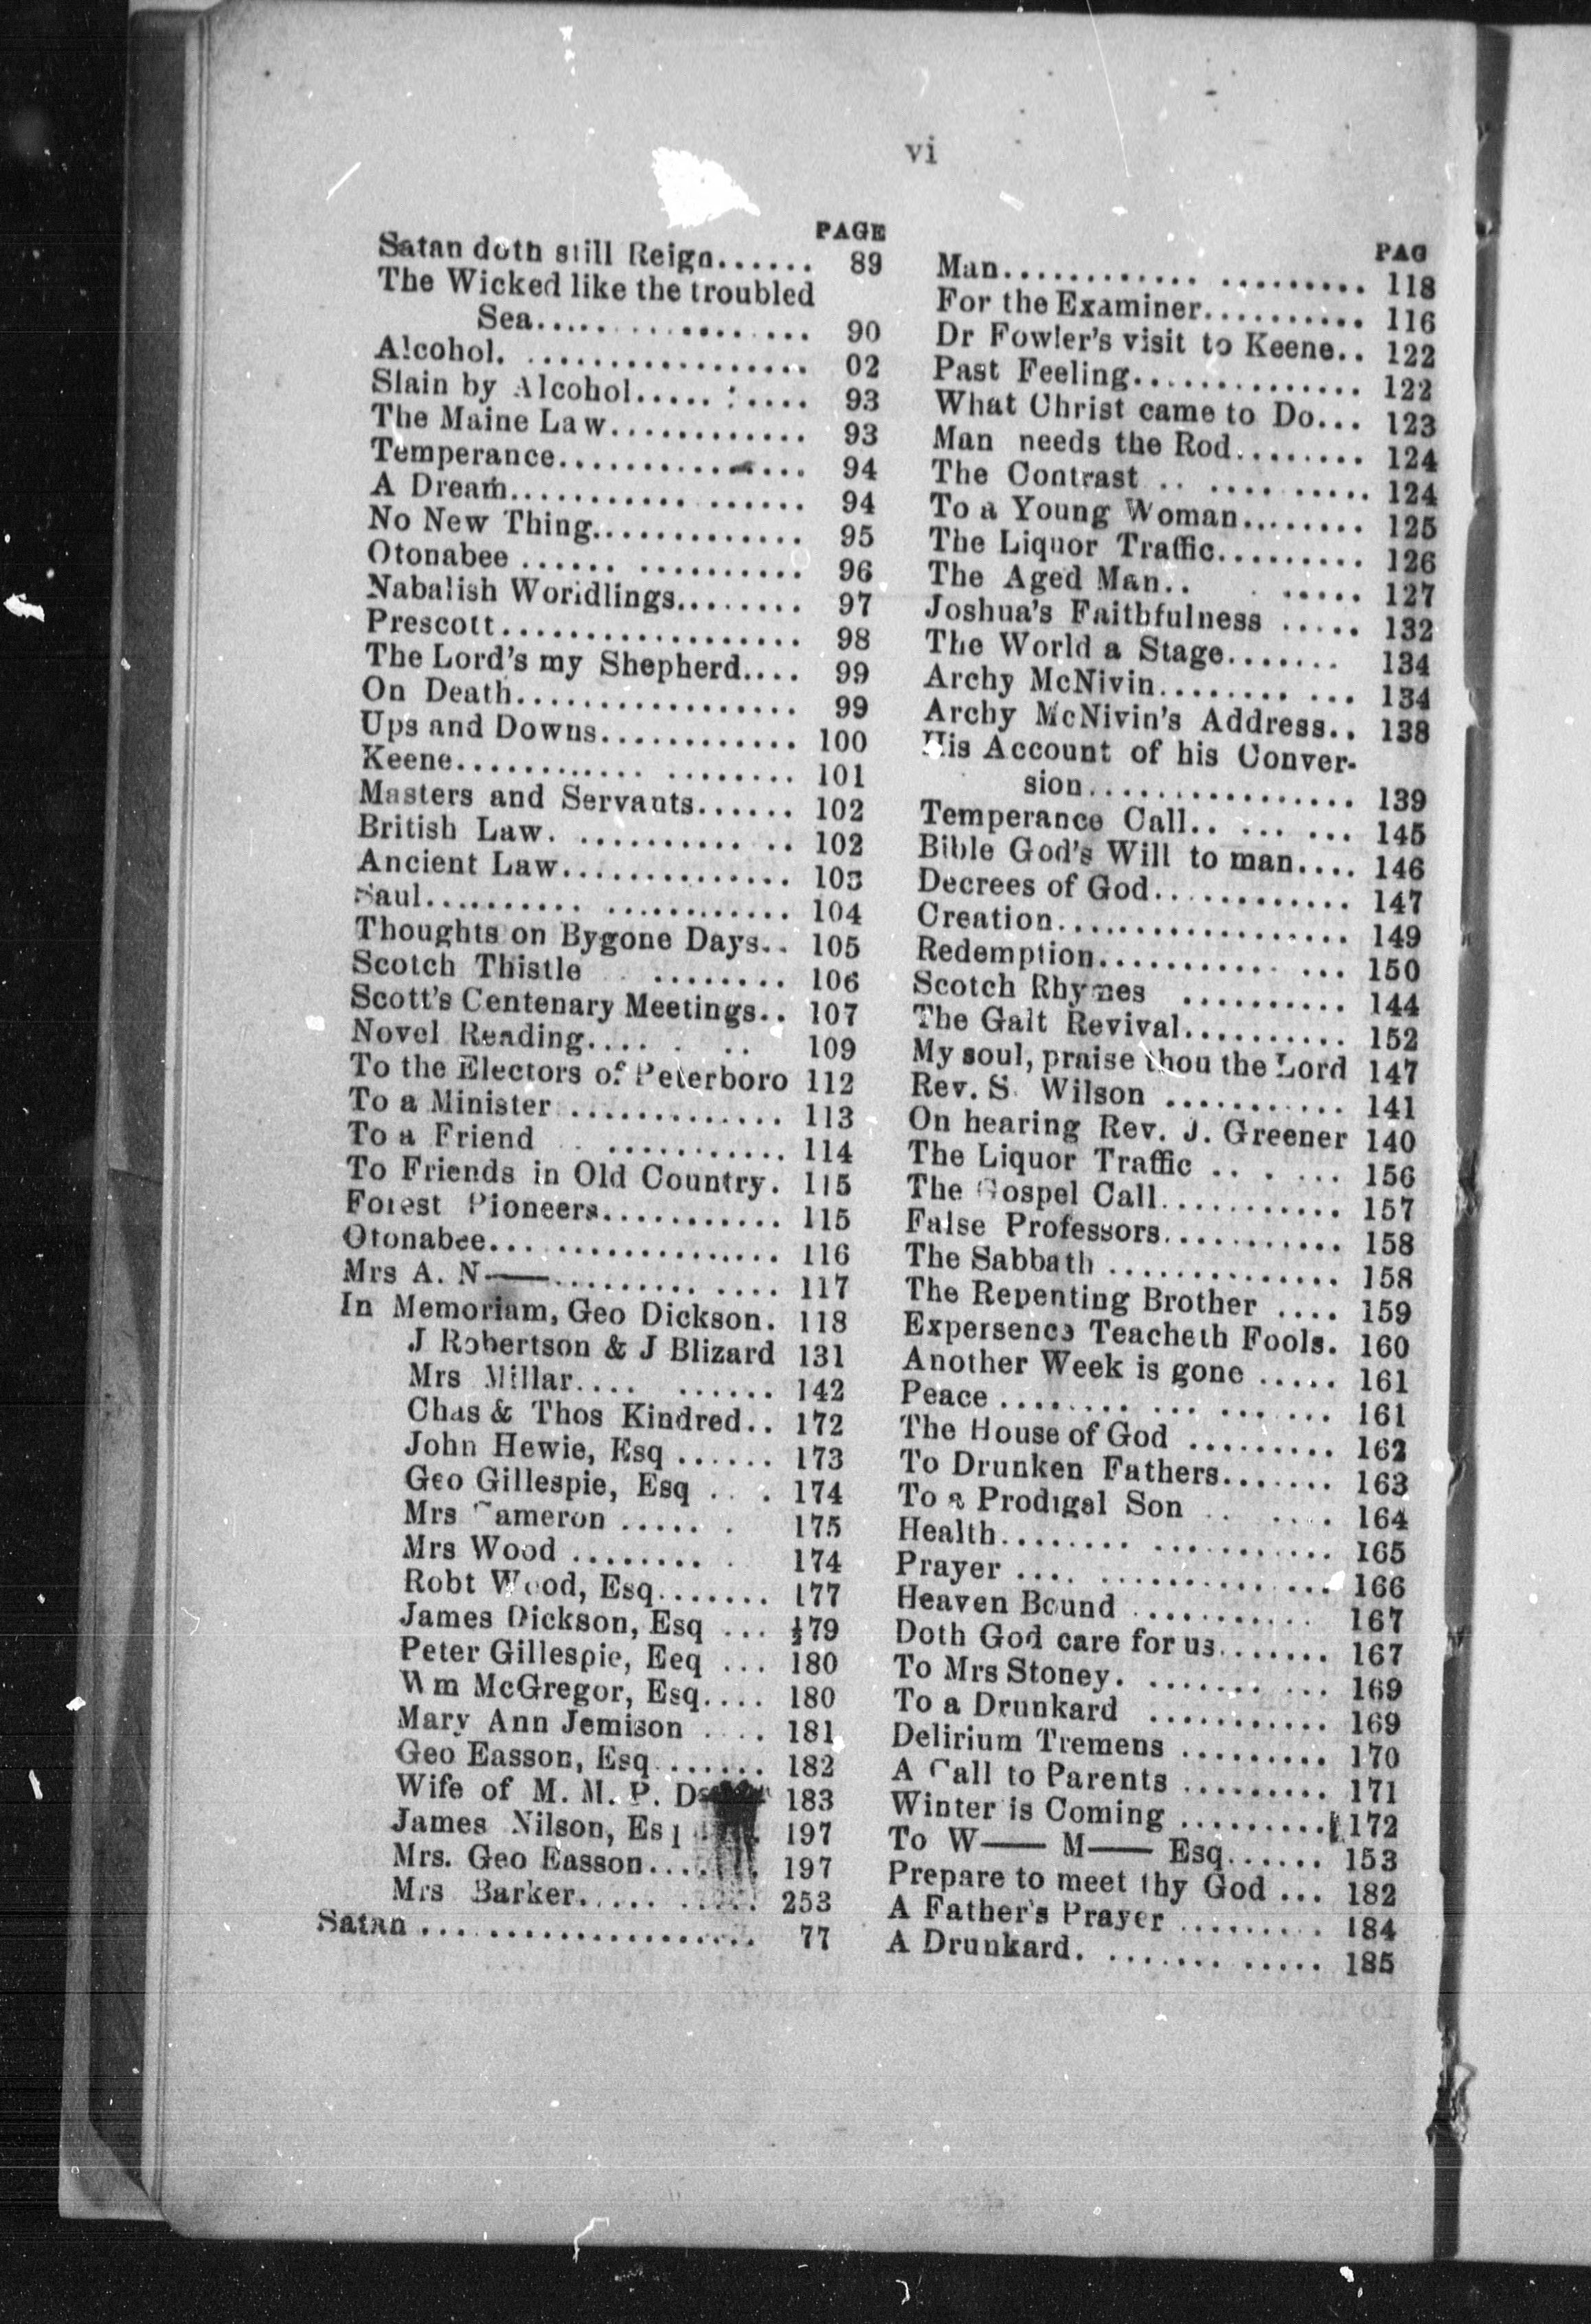 vi
PAGE
Satan doth still Reign...... 89
The Wicked like the troubled
Sea................ 90
Alcohol. ................. 02
Slain by Alcohol..... : .... 93
The Maine Law............ 93
Temperance............... 94
A Dream........... ...... 94
No New Thing............. 95
Otonabee ...... .......... 96
Nabalish Worldlings........ 97
Prescott.................. 98
The Lord's my Shepherd.... 99
On Death................. 99
Ups and Downs............ 100
Keene............ ........ 101
Masters and Servants...... 102
British Law. .......... .. 102
Ancient Law.............. 103
Saul.......... ............ 104
Thoughts on Bygone Days.. 105
Scotch Thistle ........ 106
Scott's Centenary Meetings.. 107
Novel Reading.... . .. 109
To the Electors of Peterboro 112
To a Minister ............. 113
To a Friend . ........... 114
To Friends in Old Country. 115
Forest Pioneers........... 115
Otonabee... ................ 116
Mrs A. N——......... .... 117
In Memoriam, Geo Dickson. 118
J Robertson & J Blizard 131
Mrs Millar.... ...... 142
Chas & Thos Kindred.. 172
John Hewie, Esq ...... 173
Geo Gillespie, Esq .. . 174
Mrs Cameron ..... . 175
Mrs Wood ........ . 174
Robt Wood, Esq....... 177
James Dickson, Esq ... 179
Peter Gillespie, Eeq ... 180
Wm McGregor, Esq.... 180
Mary Ann Jemison .... 181
Geo Easson, Esq....... 182
Wife of M. M. P. 183
James Nilson, Esq 197
Mrs. Geo Easson.... 197
Mrs Barker..... ..... 253
Satan .................... 77
PAG
Man............ ......... 118
For the Examiner.......... 116
Dr Fowler's visit to Keene.. 122
Past Feeling.............. 122
What Christ came to Do... 123
Man needs the Rod........ 124
The Contrast .. .... ..... 124
To a Young Woman........ 125
The Liquor Traffic......... 126
The Aged Man.. . ..... 127
Joshua's Faithfulness ..... 132
The World a Stage....... 134
Archy McNivin........ ... 134
Archy McNivin's Address.. 138
His Account of his Conver-
sion................ 139
Temperance Call.. ... ... 145
Bible God's Will to man.... 146
Decrees of God............ 147
Creation.................. 149
Redemption........... ... 150
Scotch Rhymes .......... 144
The Galt Revival........... 152
My soul, praise thou the Lord 147
Rev. S. Wilson ........... 141
On hearing Rev. J. Greener 140
The Liquor Traffic .. . ... 156
The Gospel Call........... 157
False Professors........... 158
The Sabbath .............. 158
The Repenting Brother .... 159
Expersence Teacheth Fools. 160
Another Week is gone ..... 161
Peace ........ ... ....... 161
The House of God ......... 162
To Drunken Fathers....... 163
To a Prodigal Son .. .... 164
Health........ ........... 165
Prayer .... .............. 166
Heaven Bound ........... 167
Doth God care for us....... 167
To Mrs Stoney. ....... ... 169
To a Drunkard ........... 169
Delirium Tremens ......... 170
A Call to Parents ......... 171
Winter is Coming ......... 172
To W—— M—— Esq...... 153
Prepare to meet thy God ... 182
A Father's Prayer ......... 184
A Drunkard. ....... ..... 185